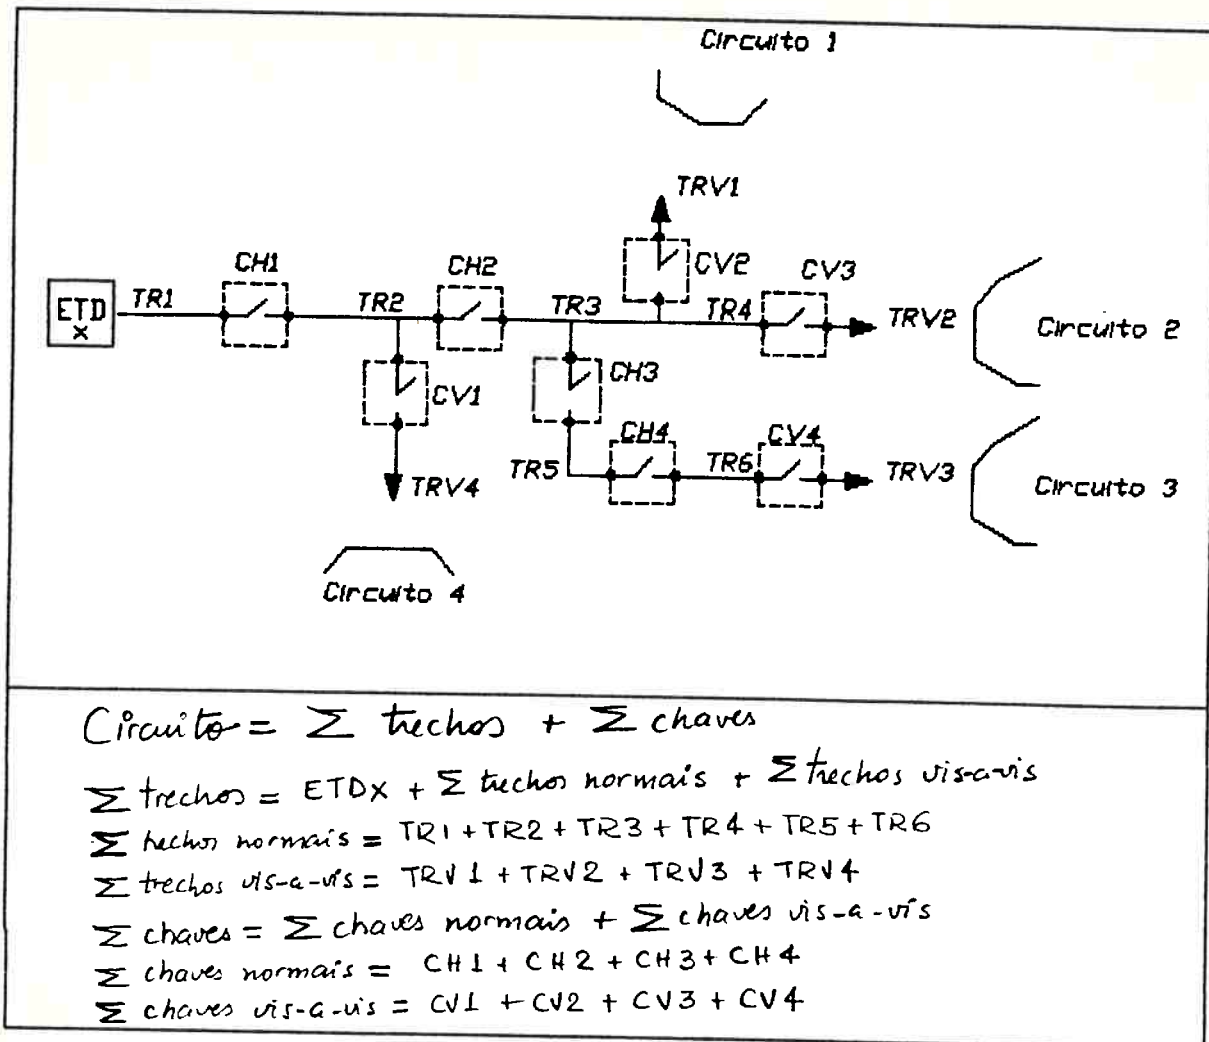 Circuito 1
TRV1
CH1
CH2
CV2
CV3
ETD
X
TR1
TR2
TR3
TR4
TRV2
Circuito 2
CV1
CH3
CH4
CV4
TR5
TR6
TRV3
Circuito 3
TRV4
Circuito 4
Circuito = Σ trechos + Σ chaves
Σ trechos = ETDX + Σ trechos normais + Σ trechos vis-a-vis
Σ trechos normais = TR1 + TR2 + TR3 + TR4 + TR5 + TR6
Σ trechos vis-a-vis = TRV1 + TRV2 + TRV3 + TRV4
Σ chaves = Σ chaves normais + Σ chaves vis-a-vis
Σ chaves normais = CH1 + CH2 + CH3 + CH4
Σ chaves vis-a-vis = CV1 + CV2 + CV3 + CV4